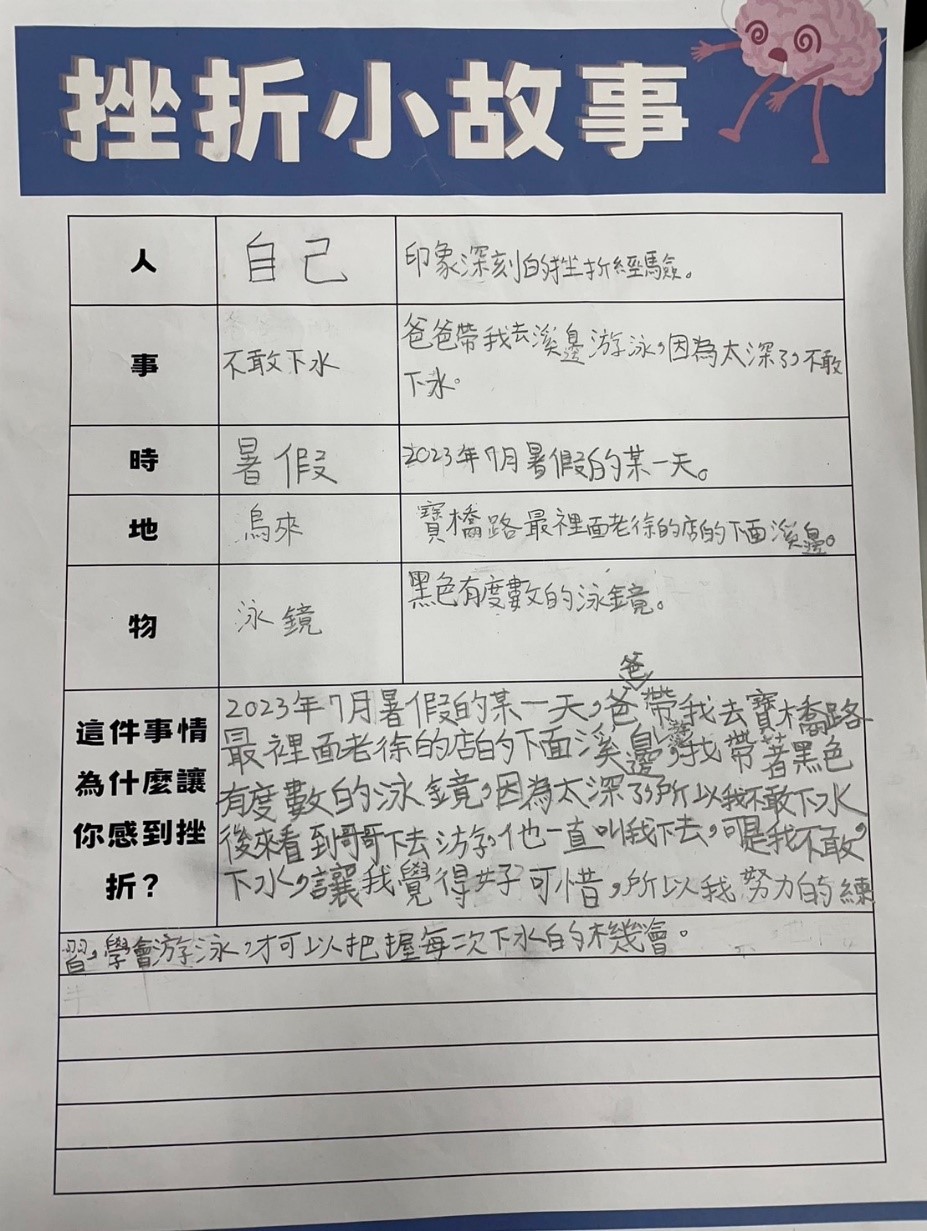 挫折小故事
人
自己
印象深刻的挫折經驗。
事
不敢下水
爸爸帶我去溪邊游泳,因為太深了,不敢
下水。
時
暑假
2023年7月暑假的某一天。
地
烏來
寶橋路最裡面老徐的店的下面溪邊。
物
泳鏡
黑色有度數的泳鏡。
這件事情
為什麼讓
你感到挫
折?
2023年7月暑假的某一天,爸爸帶我去寶橋路
最裡面老徐的店的下面溪邊,我帶著黑色
有度數的泳鏡,因為太深了,所以我不敢下水
後來看到哥哥下去游,他一直叫我下去,可是我不敢,
下水,讓我覺得好可惜,所以我努力的練
習,學會游泳,才可以把握每次下水的機會。